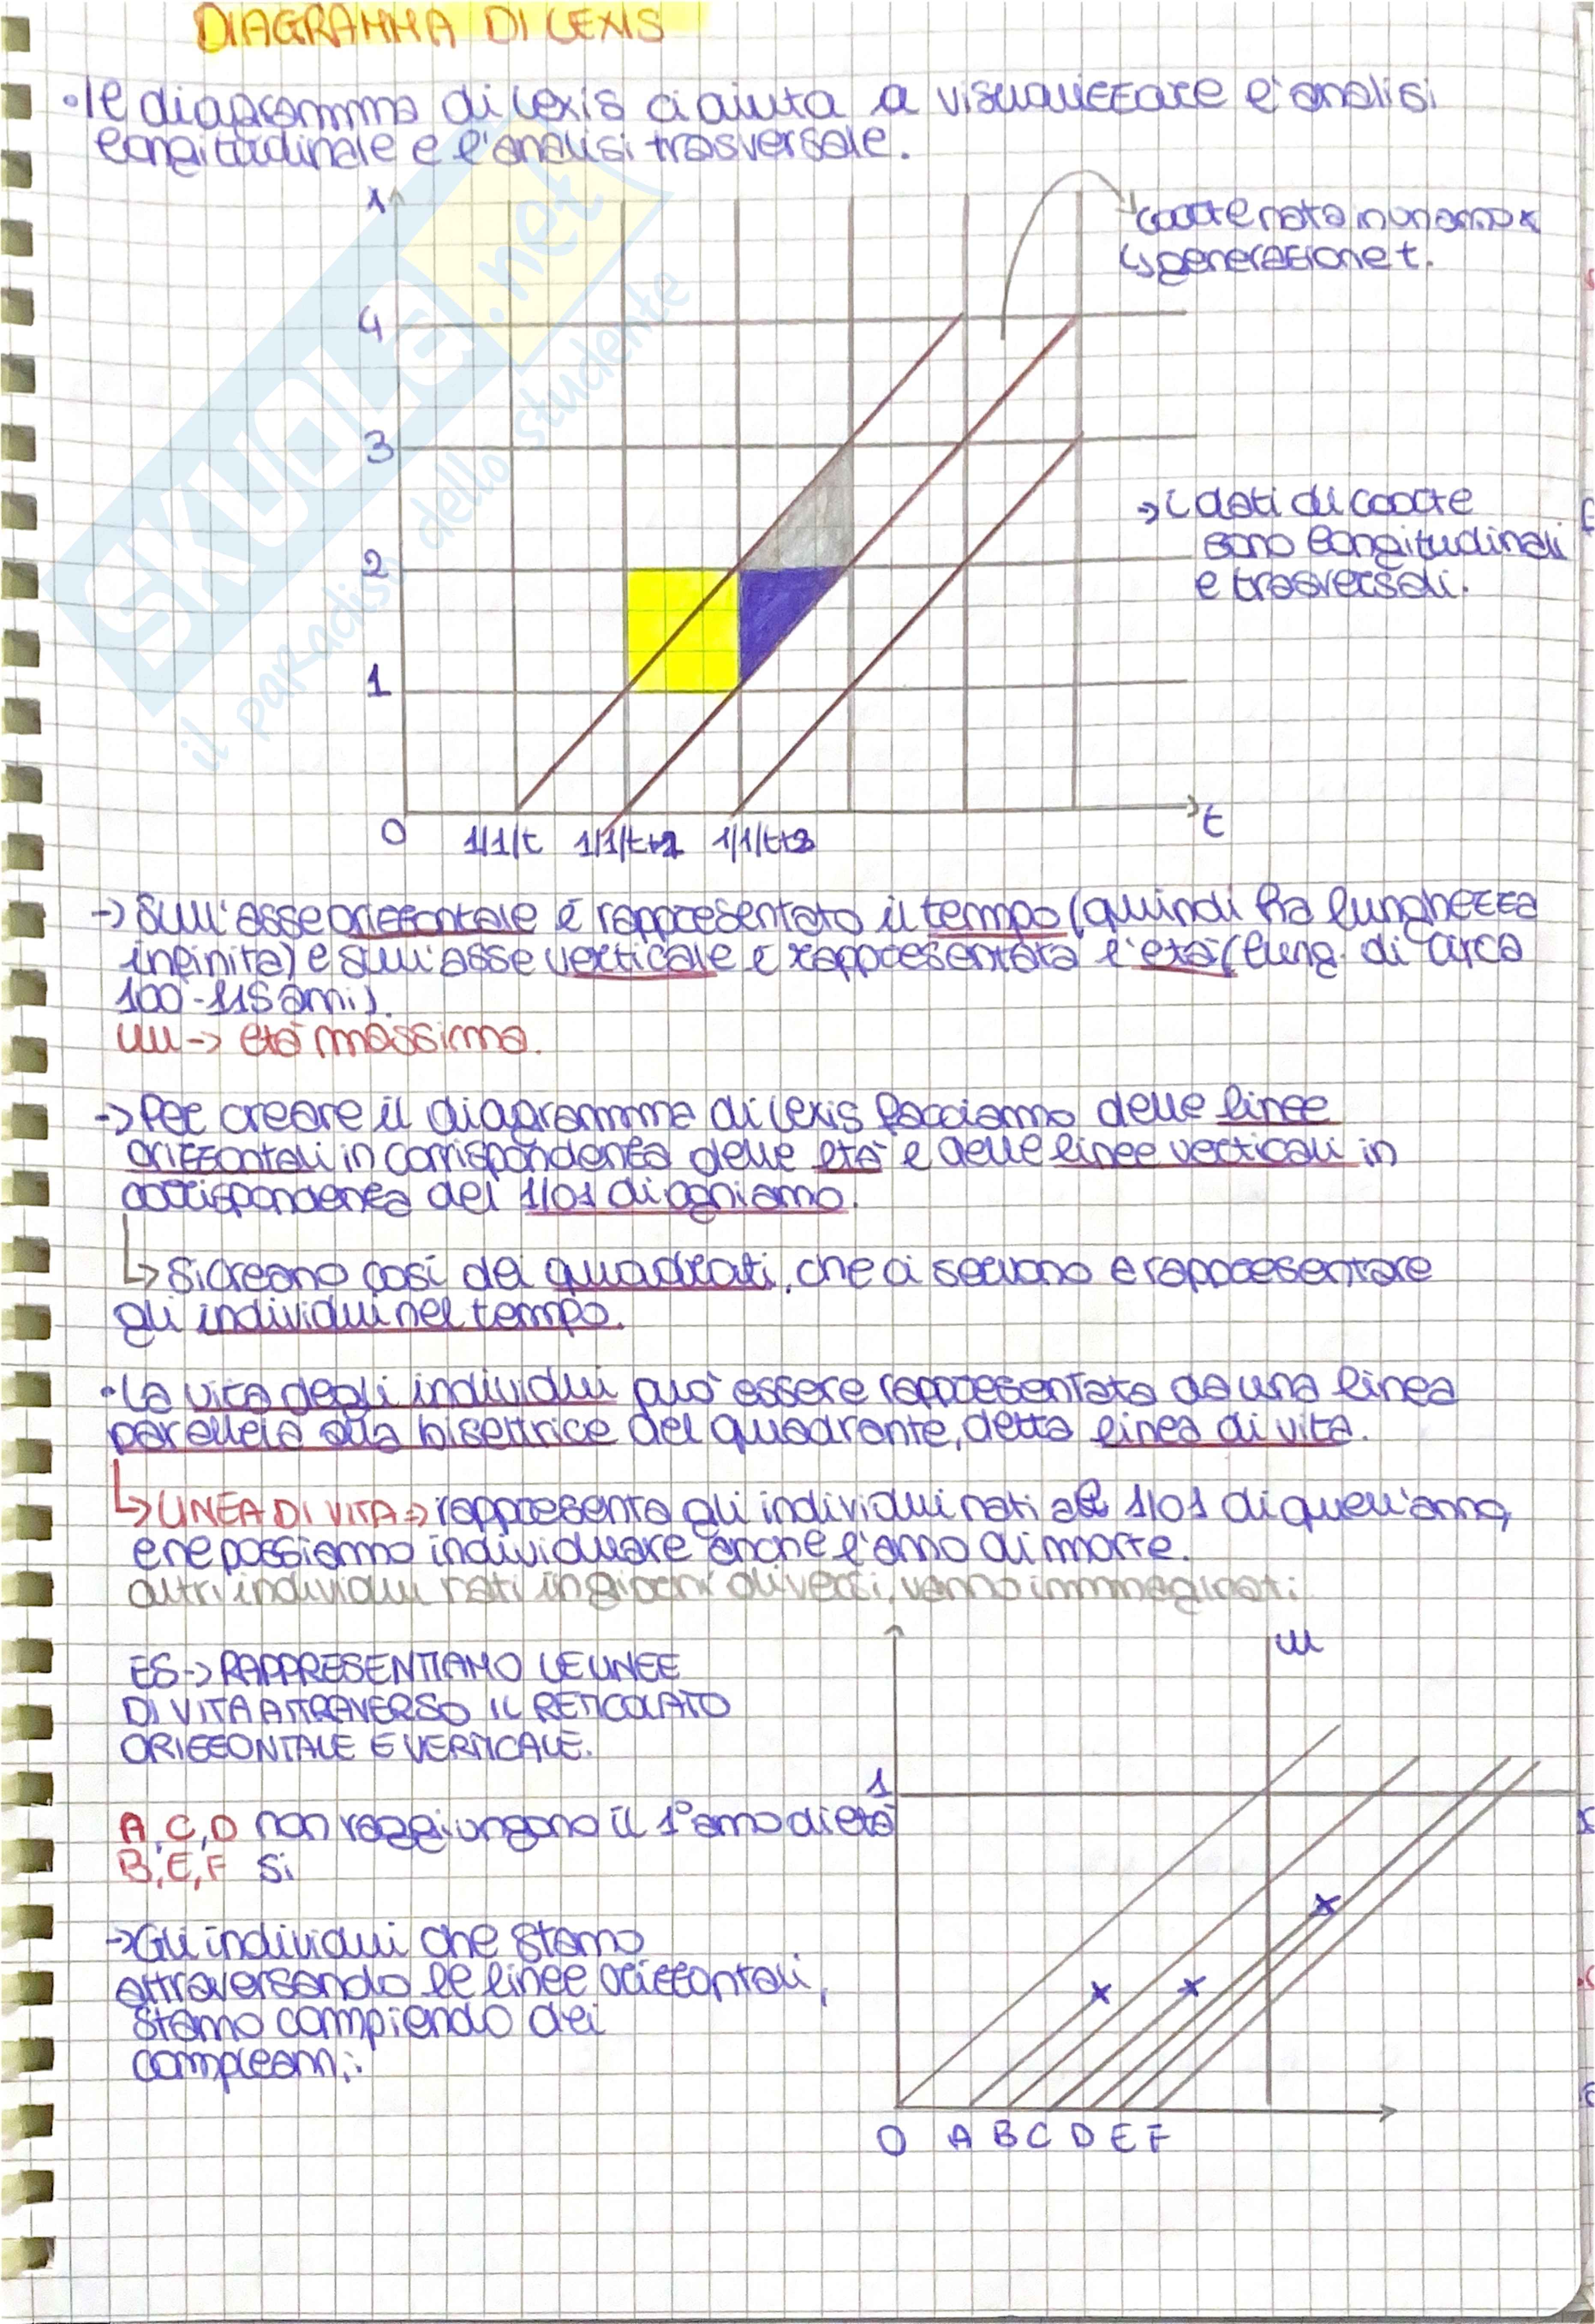 DIAGRAMMA DI LEXIS
• Il diagramma di Lexis ci aiuta a visualizzare l'analisi
longitudinale e l'analisi trasversale.
SKUOLA.net
il paradiso dello studente
coorte nata in un anno x
↳ generazione t.
4
3
→ i dati di coorte
sono longitudinali
e trasversali.
2
1
0 1/1/t 1/1/t+1 1/1/t+2
t
→ Sull'asse orizzontale è rappresentato il tempo (quindi ha lunghezza
infinita) e sull'asse verticale è rappresentata l'età (lung. di circa
100-115 anni).
ω → età massima.
→ Per creare il diagramma di Lexis facciamo delle linee
orizzontali in corrispondenza delle età e delle linee verticali in
corrispondenza del 1/01 di ogni anno.
↳ si creano così dei quadrati, che ci servono a rappresentare
gli individui nel tempo.
• La vita degli individui può essere rappresentata da una linea
parallela alla bisettrice del quadrante, detta linea di vita.
↳ LINEA DI VITA → rappresenta gli individui nati al 1/01 di quell'anno,
e ne possiamo individuare anche l'anno di morte.
altri individui nati in giorni diversi, vanno immaginati.
ω
ES → RAPPRESENTIAMO LE LINEE
DI VITA ATTRAVERSO IL RETICOLATO
ORIZZONTALE E VERTICALE.
1
A, C, D non raggiungono il 1° anno di età
B, E, F si
→ Gli individui che stanno
attraversando le linee orizzontali,
stanno compiendo dei
compleanni.
O A B C D E F